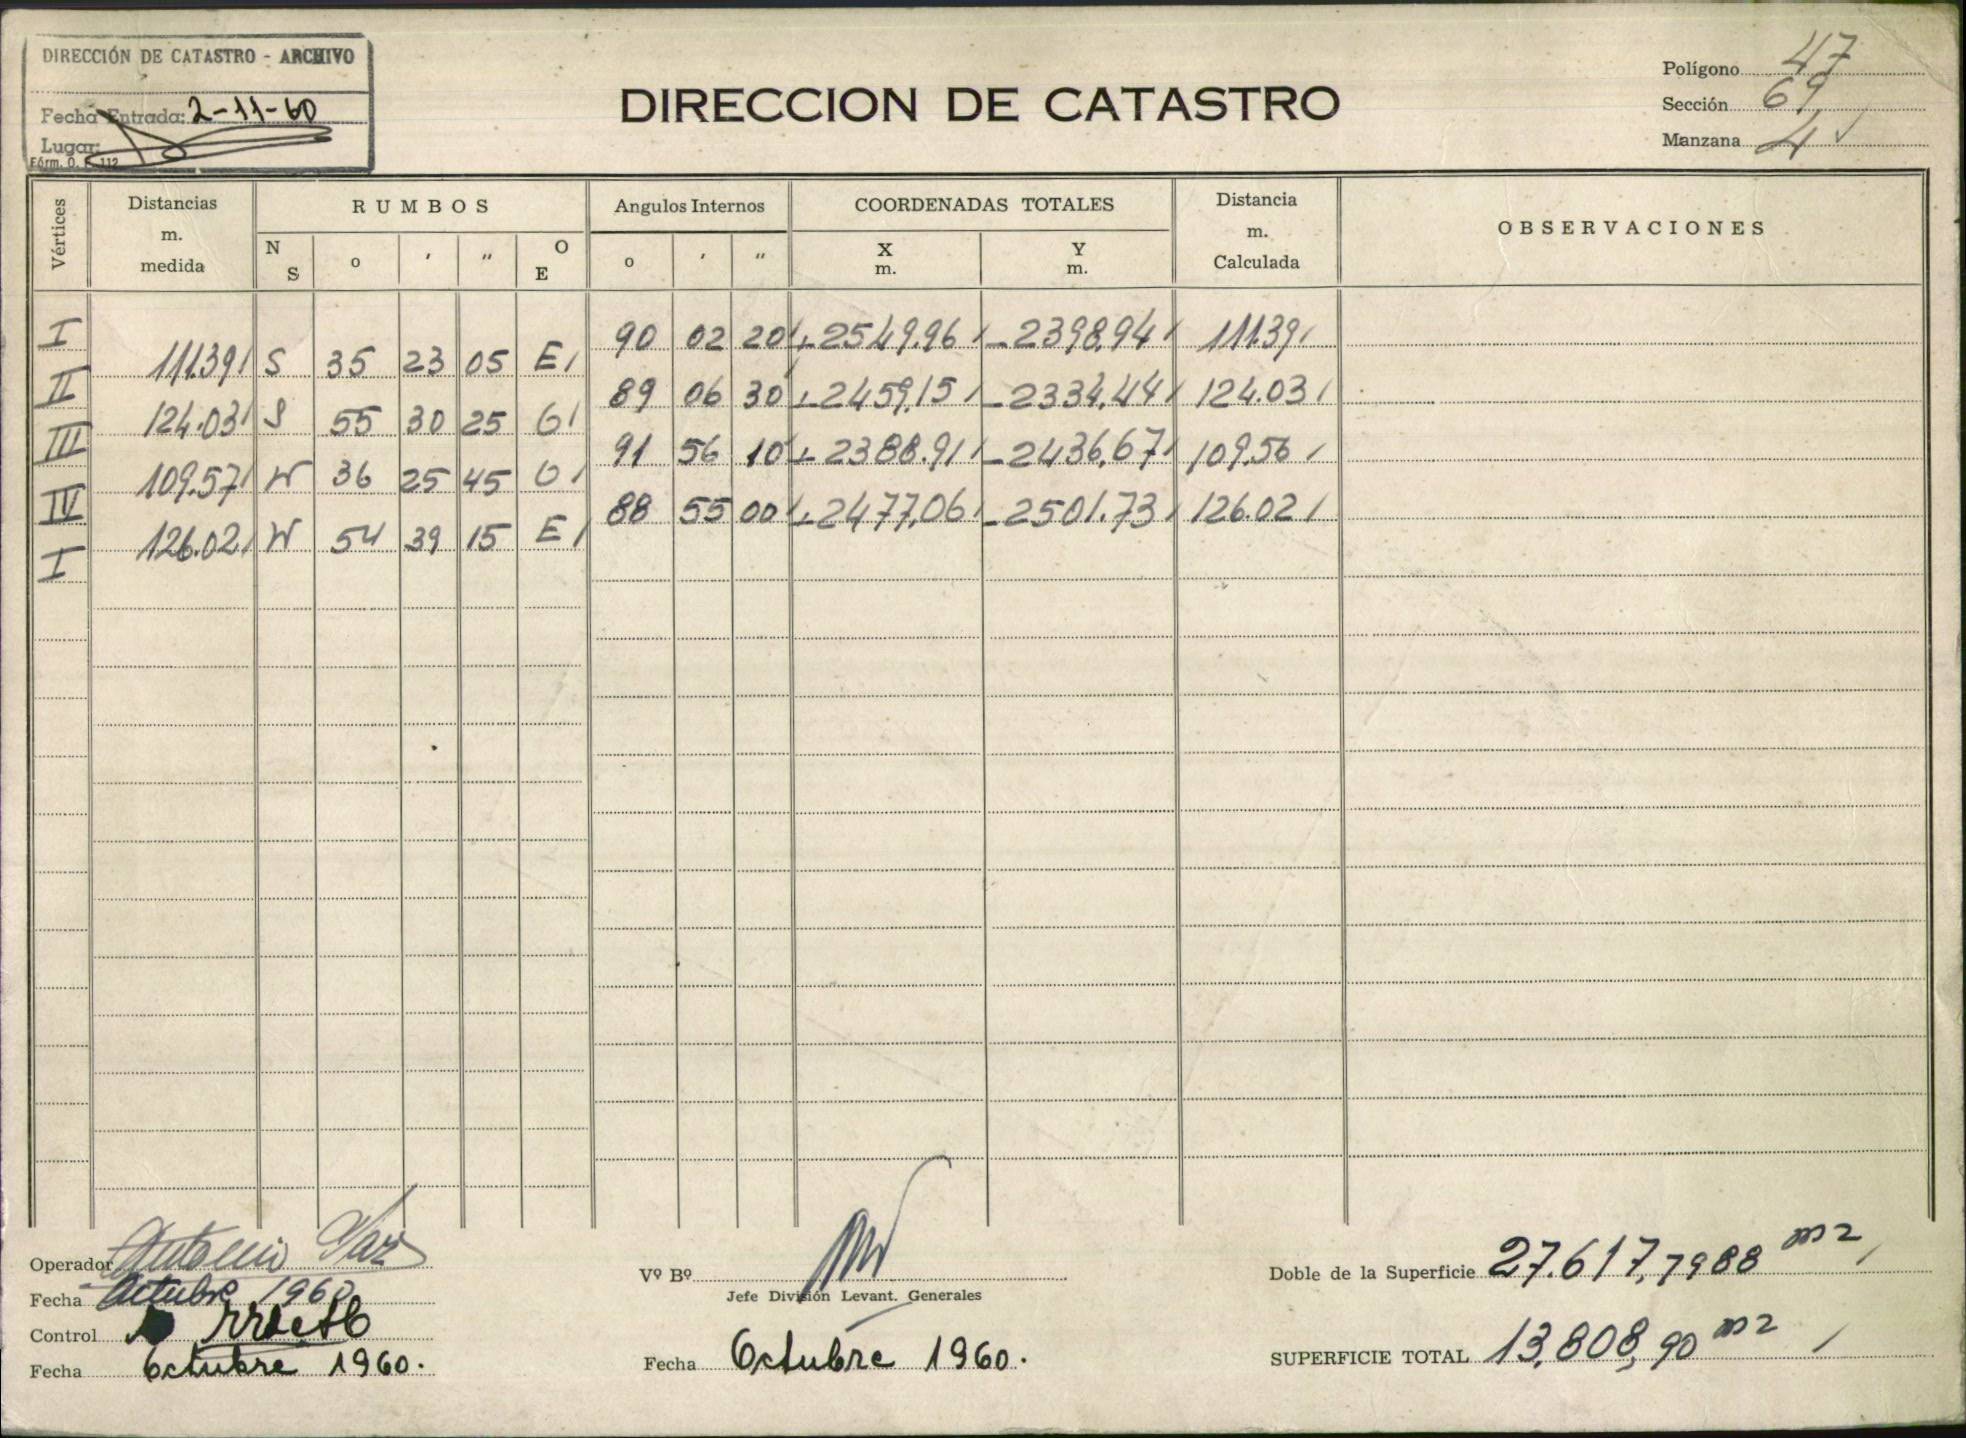 DIRECCIÓN DE CATASTRO - ARCHIVO
Fecha Entrada: 2-11-60
Lugar:
Fórm. O. 112
DIRECCION DE CATASTRO
Polígono 47
Sección 69
Manzana 4
Vértices Distancias m. medida RUMBOS Angulos Internos COORDENADAS TOTALES Distancia m. Calculada OBSERVACIONES
N S o ' " O E o ' " X m. Y m.
I 90 02 20 + 2549.96 - 2398.94 111.39
111.39 S 35 23 05 E
II 89 06 30 + 2459,15 - 2334,44 124.03
124.03 S 55 30 25 O
III 91 56 10 + 2388.91 - 2436,67 109.56
109.57 N 36 25 45 O
IV 88 55 00 + 2477,06 - 2501.73 126.02
126.02 N 54 39 15 E
I
Operador Antonio Vaz
Fecha Octubre 1960
Control
Fecha Octubre 1960.
Vº Bº
Jefe División Levant. Generales
Fecha Octubre 1960.
Doble de la Superficie 27.617,7988 m2
SUPERFICIE TOTAL 13,808,90 m2